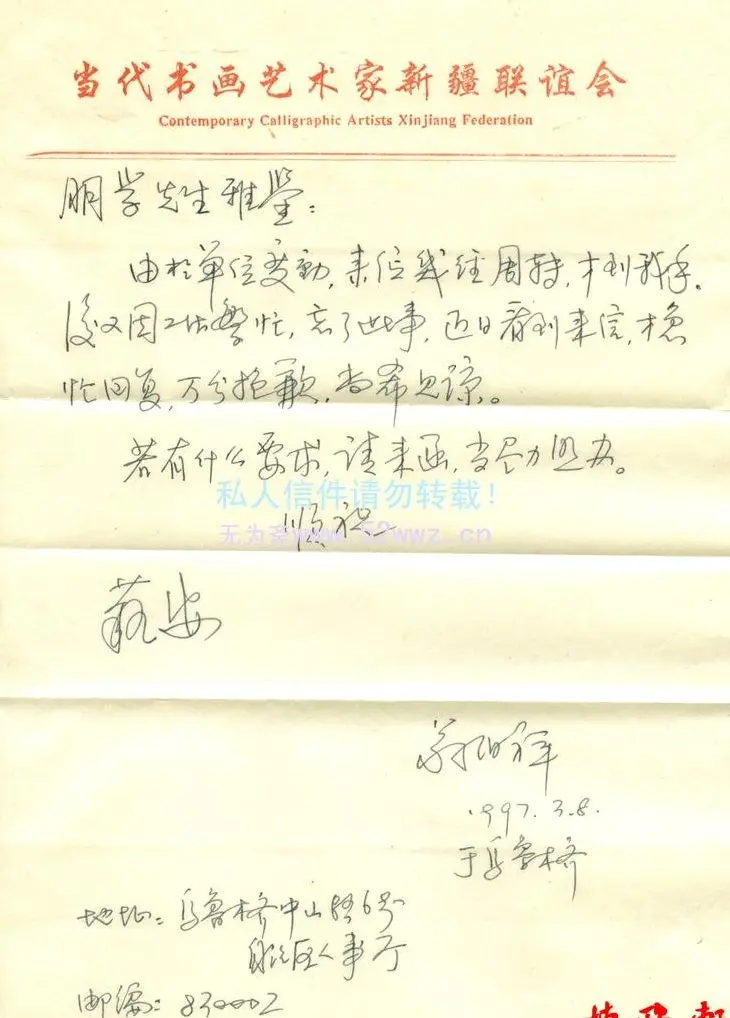 当代书画艺术家新疆联谊会
Contemporary Calligraphic Artists Xinjiang Federation
朋学先生雅鉴：
由於单位变动，来信几经周转，才到我手。
后又因工作繁忙，忘了此事，近日看到来信，才急
忙回复，万分抱歉，尚希见谅。
若有什么要求，请来函，当尽力照办。
私人信件请勿转载！
顺祝
无为斋 52wwz.cn
安
1997.3.8.
于乌鲁木齐
地址：乌鲁木齐中山路6号
自治区人事厅
邮编：830002